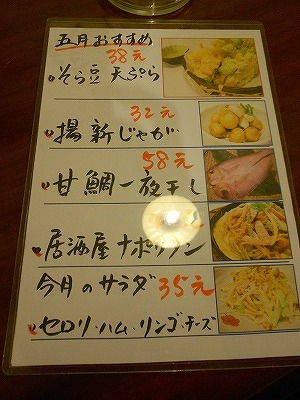 五月おすすめ
38元
そら豆 天ぷら
32元
揚 新じゃが
58元
甘鯛一夜干し
居酒屋ナポリタン
今月のサラダ 35元
セロリ・ハム・リンゴ・チーズ